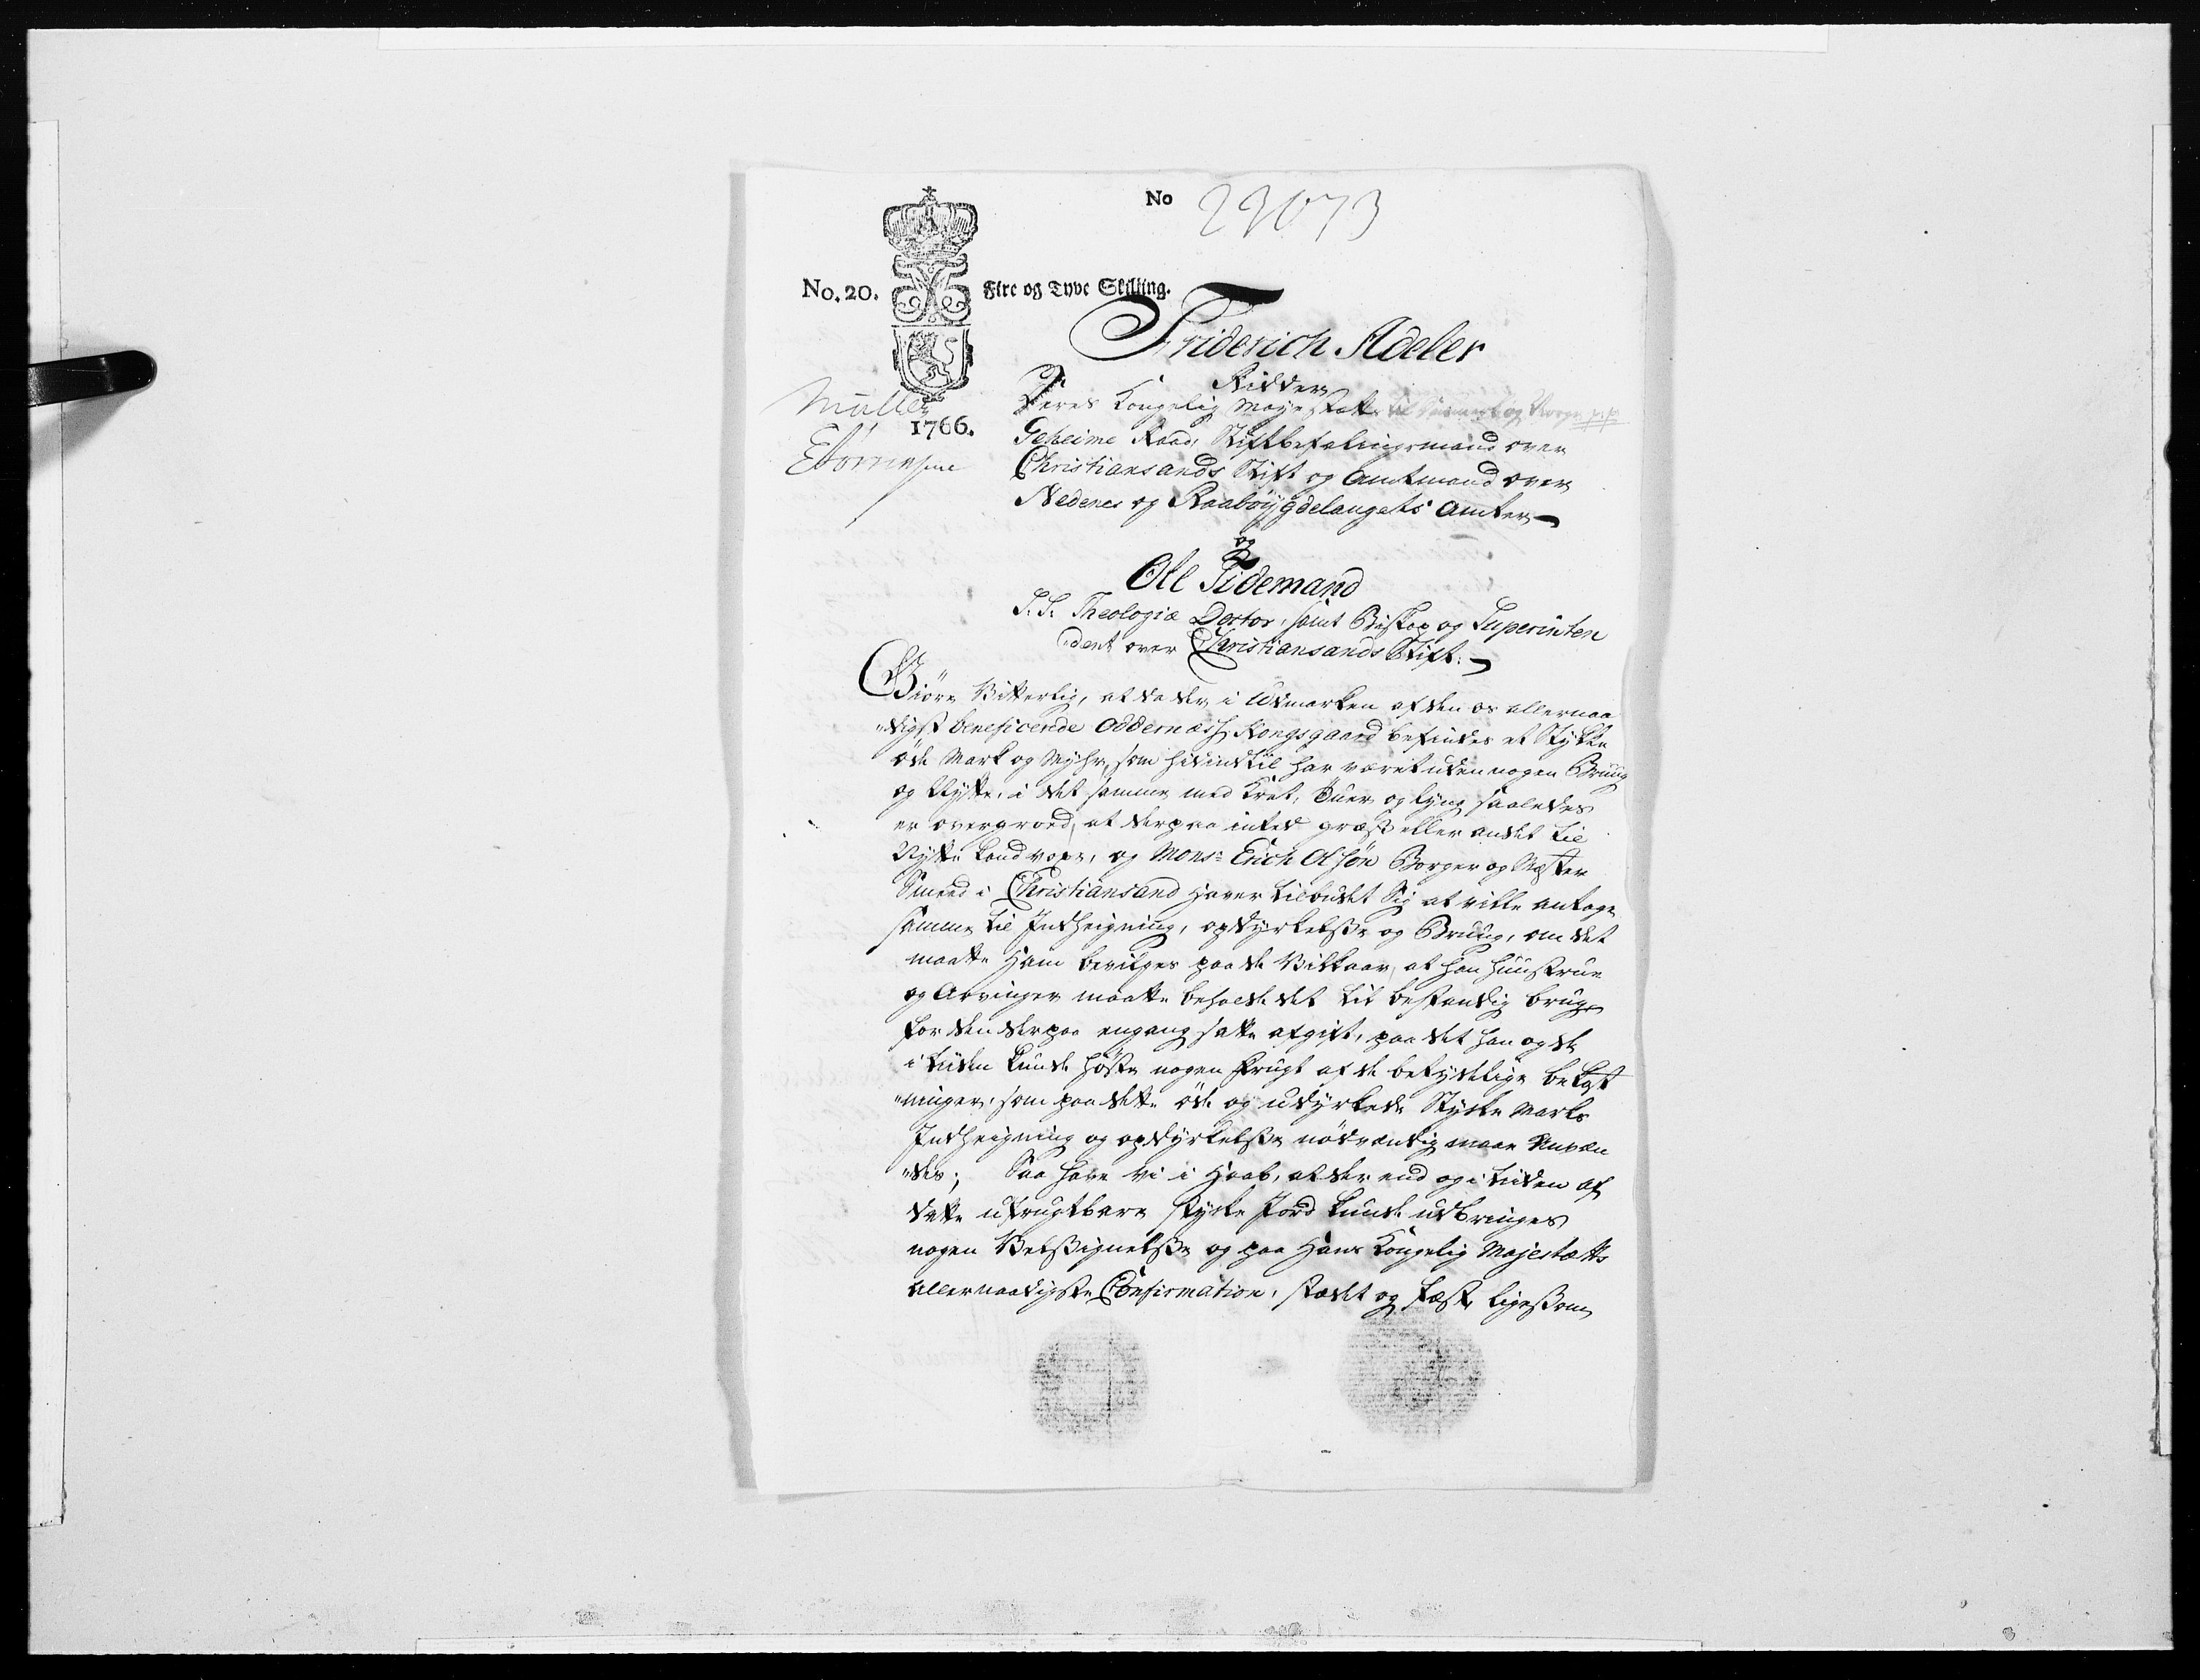 No 23073
No. 20. Fire og Tyve Skilling.
1766.
Müller
Friderich Adeler
Ridder
Deres Kongelig Mayestætts til Danmark og Norge p. p.
Geheime Raad, Stiftbefalingsmand over
Christiansands Stift og Amtmand over
Nedenes og Raabøÿgdelaugets Amter
og
Ole Tidemand
S. S. Theologiæ Doctor, samt Biskop og Superinten
dent over Christiansands Stift.
Giöre Vitterlig, at da der i Udmarken af den os allernaa
digst beneficerede Oddernæss Kongsgaard befindes et Stykke
øde Mark og Myhr, som hidindtil har været uden nogen Brug
og Nytte, i det samme med Krat, Buer og Lyng saaledes
er overgroed, at derpaa intet græs eller andet til
Nytte kand voxe, og Mons: Erich Olsøn Borger og Mester
Smed i Christiansand haver tilbudet Sig at ville antage
samme til Indheigning, opdyrkelse og Brug, om det
maatte Ham bevilges paa de Vilkaar, at han hustrue
og Arvinger maatte beholde det til bestandig brug
for den derpaa engang satte afgift, paa det han og de
i tiden kunde høste nogen frugt af de betydelige bekost
ninger, som paa dette øde og udyrkede Stykke Marks
Indheigning og opdyrkelse nødvendig maae anvæn
des; Saa have Vi i Haab, at der end og i tiden af
dette ufrugtbare stykke Jord kunde udbringes
nogen Velsignelse og paa Hans Kongelig Majestætts
allernaadigste Confirmation, stædet og fæst, ligesom